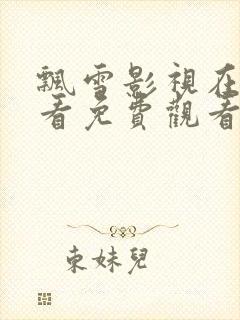 飄雪影視在
看免費觀看
束妹兒